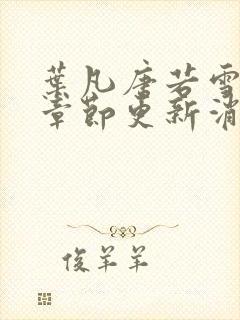 葉凡唐若雪
章節更新消
俊羊羊